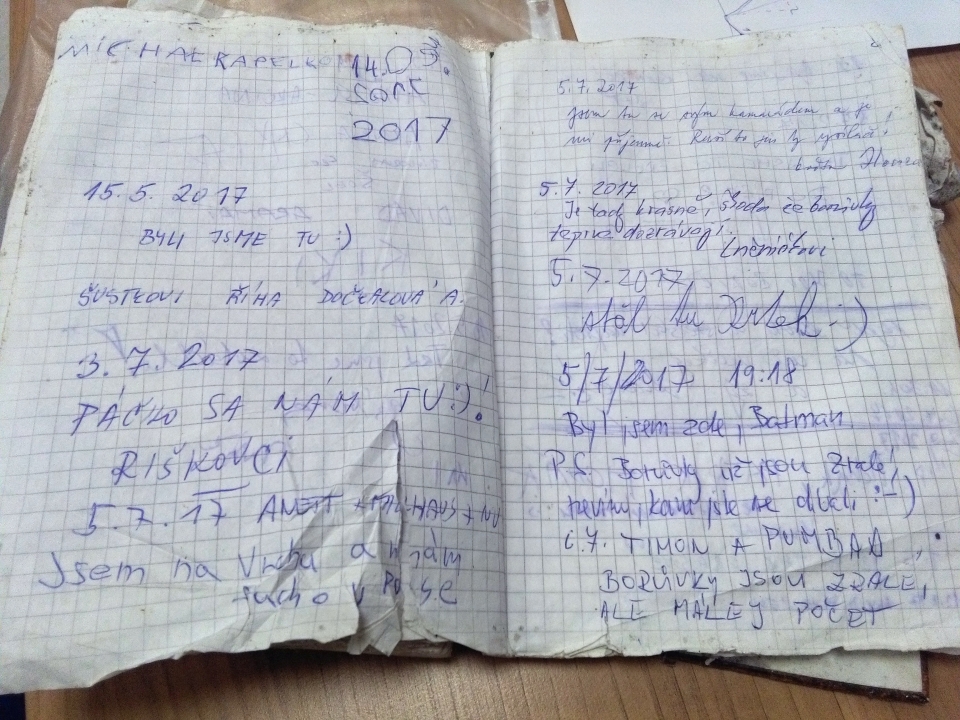 MICHAL KAPELKO 14.05.
2017
15.5. 2017
BYLI JSME TU :)
ŠUSTKOVI ŘÍHA DOČKALOVÁ A.
3.7. 2017
PÁČILO SA NÁM TU :)!
RIŠKOVCI
5.7.17 ANETT
Jsem na vrchu a mám
sucho v puse
5.7.2017
Jsem tu se svým kamarádem a je
mi příjemně.
5.7.2017
Je tady krásně, škoda že borůvky
teprve dozrávají.
Němečkovi
5.7.2017
stál tu Krtek :-)
5/7/2017 19.18
Byl jsem zde, Batman
P.S. Borůvky už jsou zralé,
nevím, kam jste se dívali :-)
TIMON A PUMBAA,
BORŮVKY JSOU ZRALÉ,
ALE MALEJ POČET